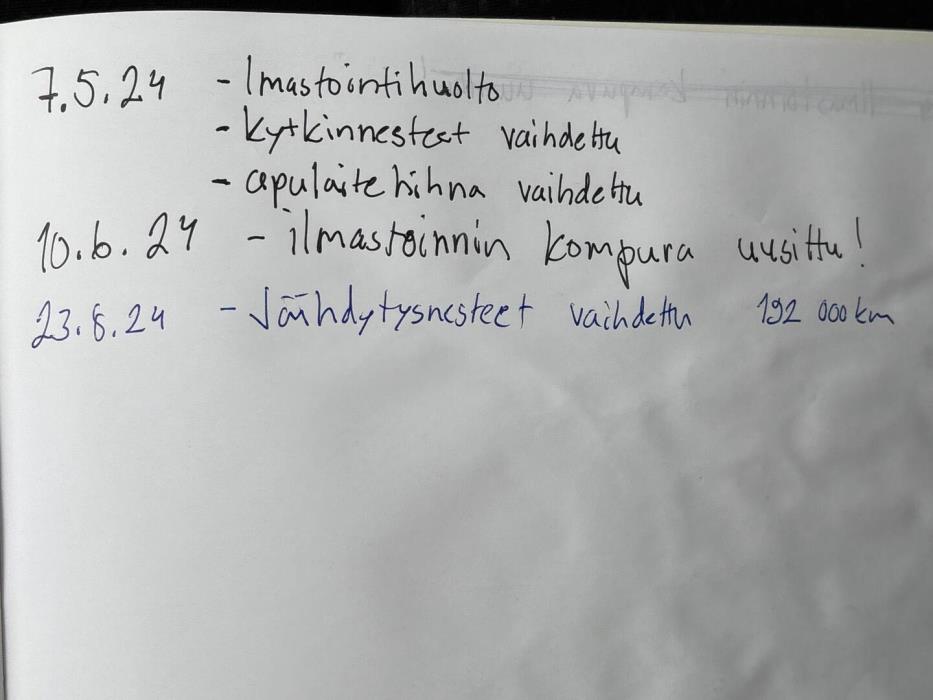 7.5.24 - Ilmastointihuolto
- kytkinnesteet vaihdettu
- apulaitehihna vaihdettu
10.6.24 - ilmastoinnin kompura uusittu!
23.8.24 - Jäähdytysnesteet vaihdettu 192 000 km